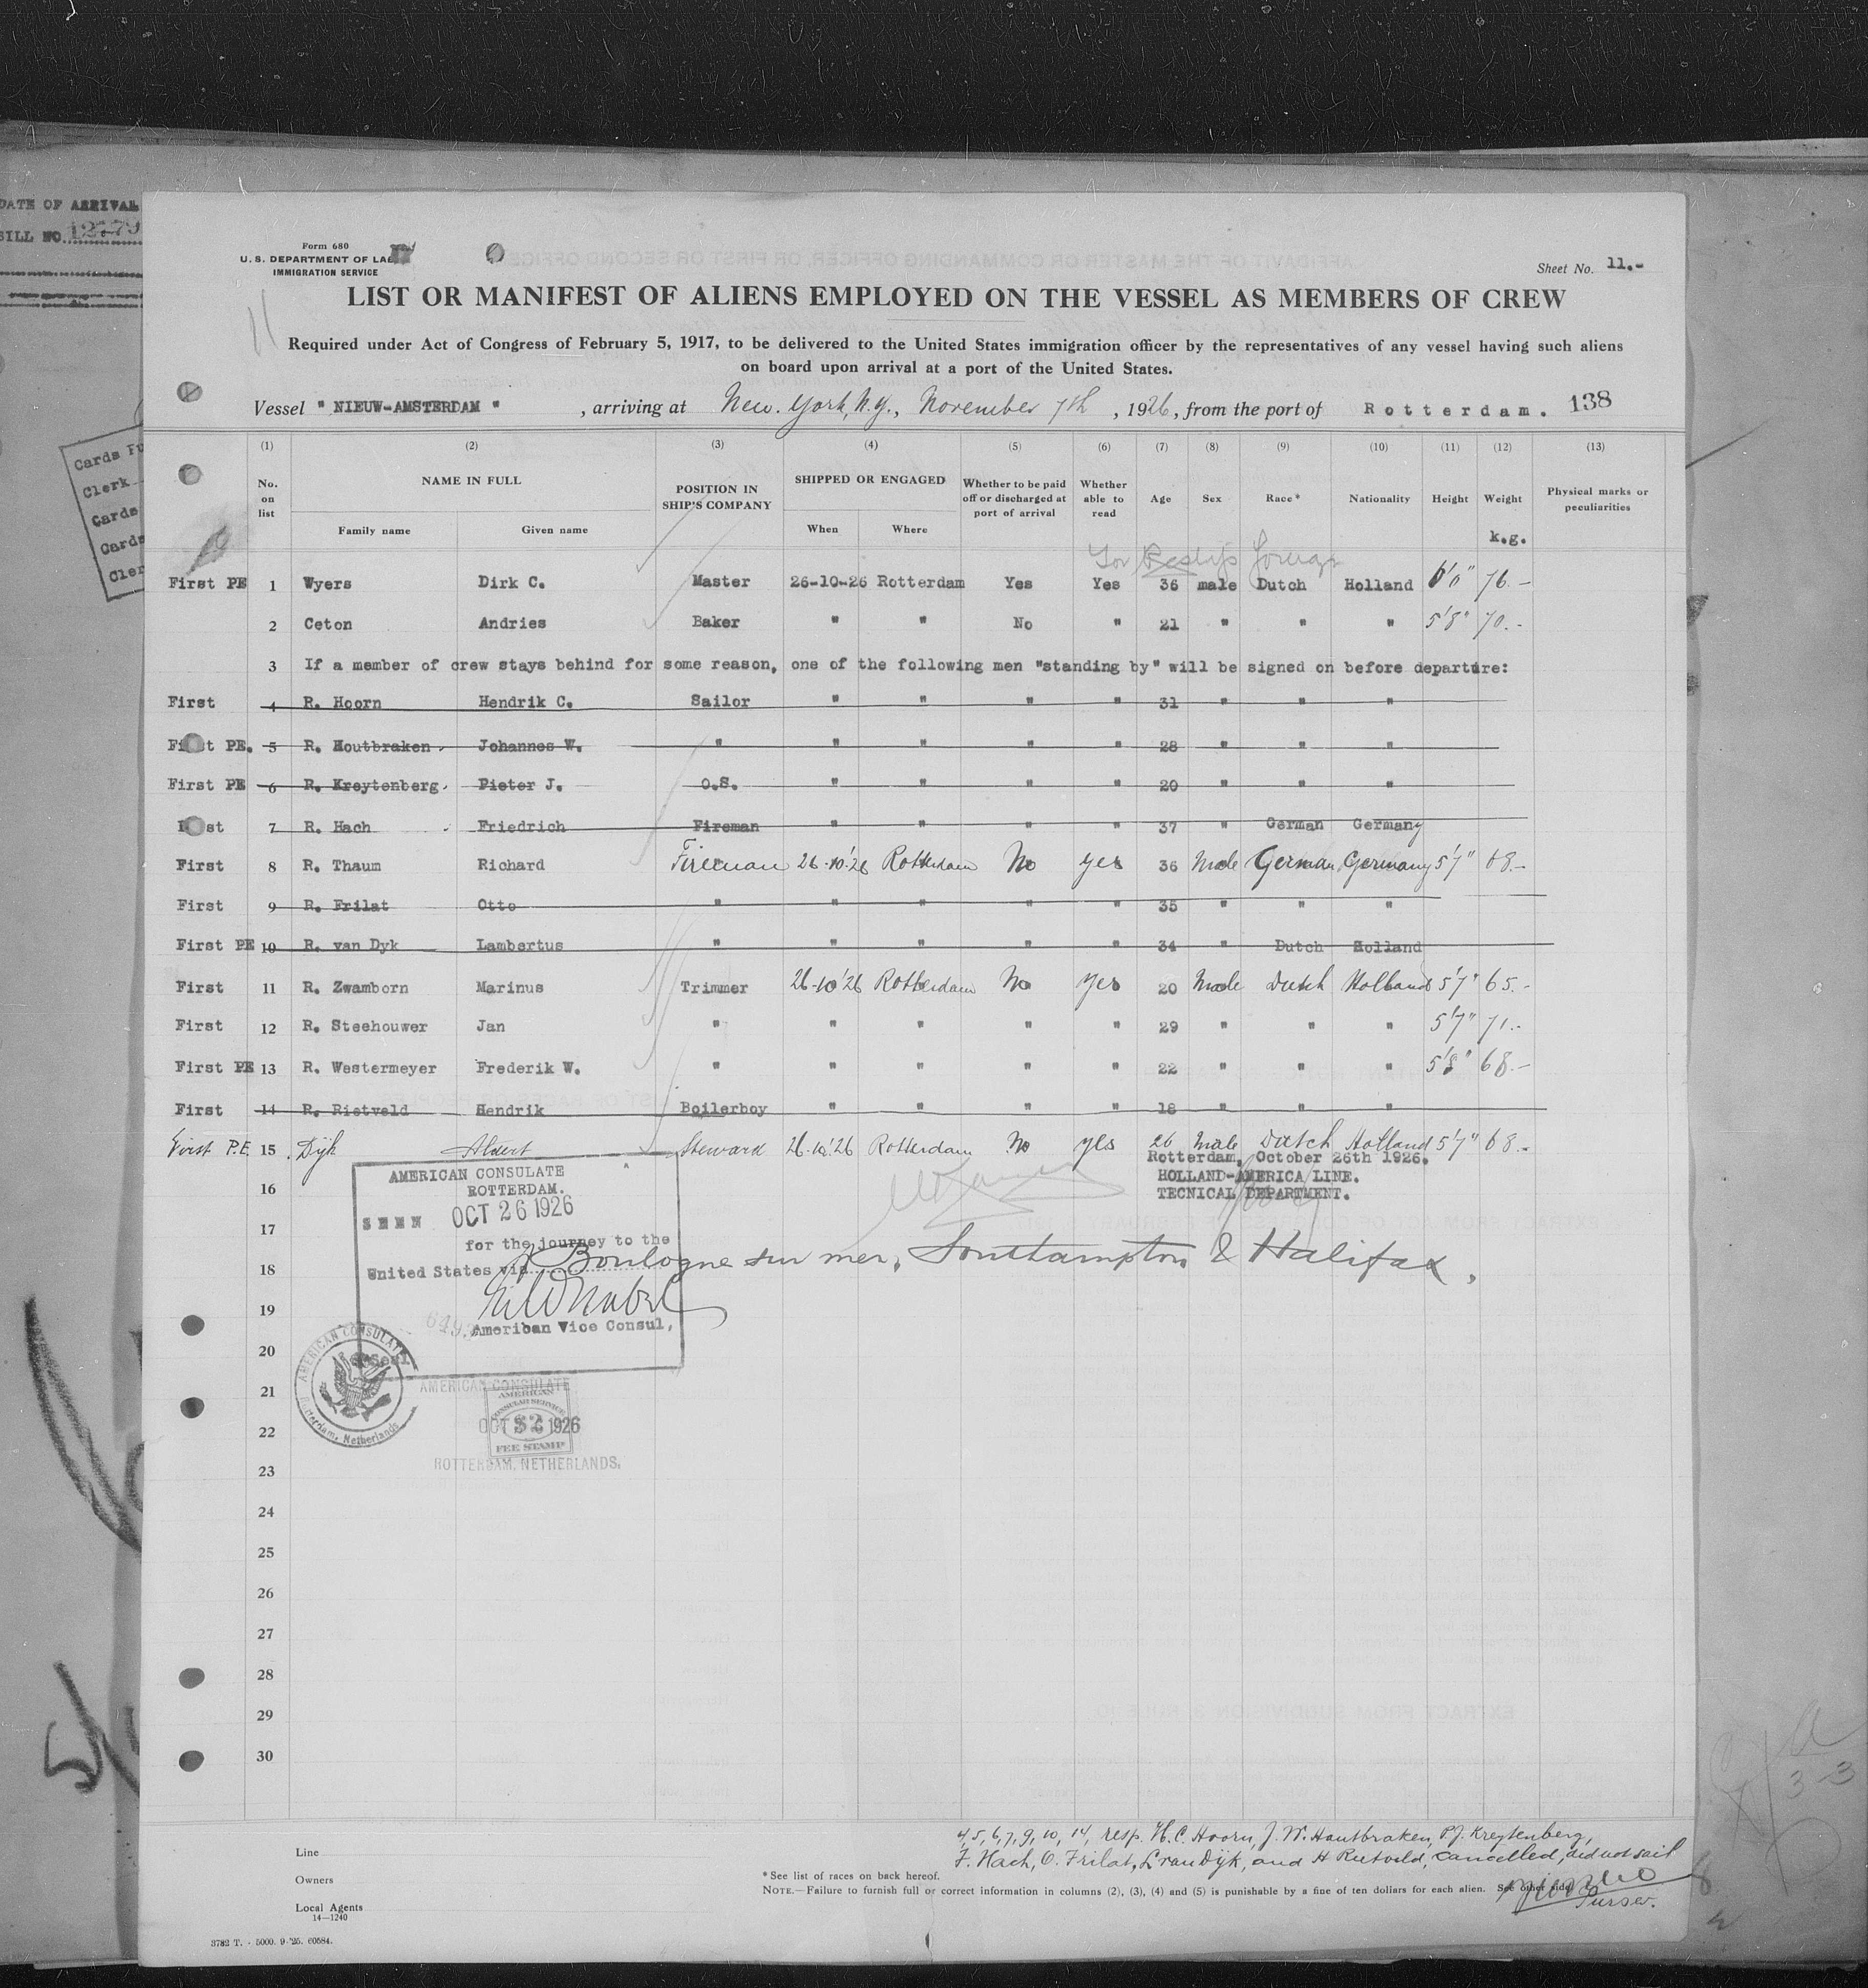 DATE OF ARRIVAL
BILL NO. 12779
Cards Fu
Clerk
Cards
Cards
Cler
Form 680
U. S. DEPARTMENT OF LAB
IMMIGRATION SERVICE
Sheet No. 11.-
11
LIST OR MANIFEST OF ALIENS EMPLOYED ON THE VESSEL AS MEMBERS OF CREW
Required under Act of Congress of February 5, 1917, to be delivered to the United States immigration officer by the representatives of any vessel having such aliens
on board upon arrival at a port of the United States.
Vessel " NIEUW-AMSTERDAM " , arriving at New. York, N.Y., November 7th , 1926, from the port of Rotterdam. 138
(1) (2) (3) (4) (5) (6) (7) (8) (9) (10) (11) (12) (13)
No. on list NAME IN FULL Family name Given name POSITION IN SHIP'S COMPANY SHIPPED OR ENGAGED When Where Whether to be paid off or discharged at port of arrival Whether able to read Age Sex Race* Nationality Height Weight Physical marks or peculiarities
k.g.
For Reship Foreign
First PE 1 Wyers Dirk C. Master 26-10-26 Rotterdam Yes Yes 36 male Dutch Holland 6'0" 76.-
2 Ceton Andries Baker " " No " 21 " " " 5'8" 70.-
3 If a member of crew stays behind for some reason, one of the following men "standing by" will be signed on before departure:
First 4 R. Hoorn Hendrik C. Sailor " " " " 31 " " "
First PE. 5 R. Houtbraken. Johannes W. " " " " " 28 " " "
First PE 6 R. Kreytenberg. Pieter J. O.S. " " " " 20 " " "
First 7 R. Hach Friedrich Fireman " " " " 37 " German Germany
First 8 R. Thaum Richard Fireman 26-10'26 Rotterdam No yes 36 Male German Germany 5'7" 68.-
First 9 R. Frilat Otto " " " " " 35 " " "
First PE 10 R. van Dyk Lambertus " " " " " 34 " Dutch Holland
First 11 R. Zwamborn Marinus Trimmer 26-10'26 Rotterdam No yes 20 Male Dutch Holland 5'7" 65.-
First 12 R. Steehouwer Jan " " " " " 29 " " " 5'7" 71.-
First PE 13 R. Westermeyer Frederik W. " " " " " 22 " " " 5'8" 68.-
First 14 R. Rietveld Hendrik Boilerboy " " " " 18 " " "
First P.E. 15 Dijk Aldert Steward 26-10'26 Rotterdam No yes 26 Male Dutch Holland 5'7" 68.-
Rotterdam, October 26th 1926.
HOLLAND-AMERICA LINE.
TECNICAL DEPARTMENT.
AMERICAN CONSULATE
ROTTERDAM.
SEEN OCT 26 1926
for the journey to the
United States via Boulogne sur mer, Southampton & Halifax,
American Vice Consul,
Seal
AMERICAN CONSULATE
Rotterdam, Netherlands
AMERICAN CONSULATE
AMERICAN
CONSULAR SERVICE
$2
OCT 26 1926
FEE STAMP
ROTTERDAM, NETHERLANDS.
16
17
18
19
20
21
22
23
24
25
26
27
28
29
30
4, 5, 6, 7, 9, 10, 14, resp. H.C. Hoorn, J.W. Houtbraken, P.J. Kreytenberg,
F. Hach, O. Frilat, L van Dijk, and H Rietveld, cancelled, did not sail
Purser.
Line
Owners
Local Agents
14—1240
* See list of races on back hereof.
NOTE.—Failure to furnish full or correct information in columns (2), (3), (4) and (5) is punishable by a fine of ten dollars for each alien. See other side.
3782 T. - 5000. 9-'25. 60584.